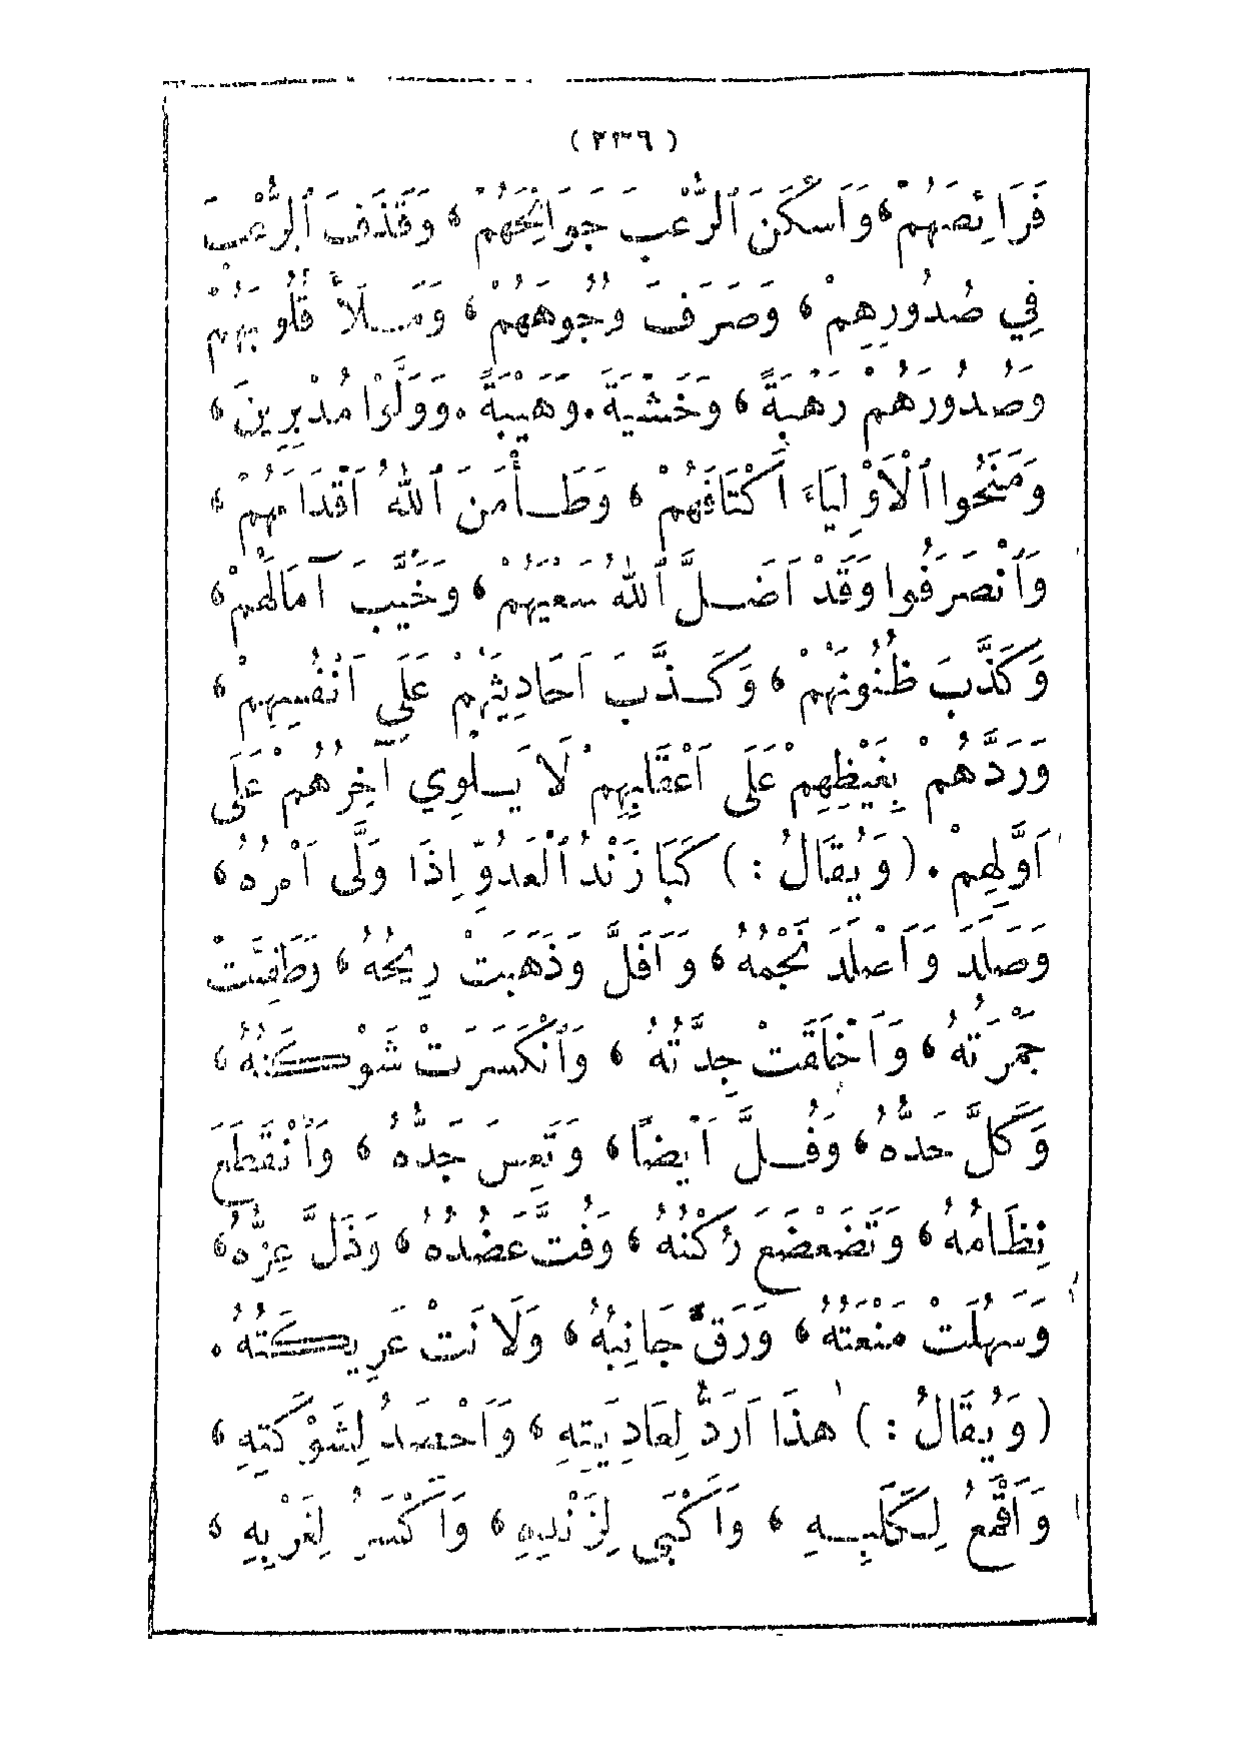 (٢٣٦)
فَرَائِصَهُمْ، وَأَسْكَنَ ٱلرُّعْبَ جَوَانِحَهُمْ، وَقَذَفَ ٱلرُّعْبَ
فِي صُدُورِهِمْ، وَصَرَفَ وُجُوهَهُمْ، وَمَلَأَ قُلُوبَهُمْ
وَصُدُورَهُمْ رَهْبَةً، وَخَشْيَةً. وَهَيْبَةً. وَوَلَّوْا مُدْبِرِينَ،
وَمَنَحُوا ٱلْأَوْلِيَاءَ أَكْتَافَهُمْ، وَطَأْمَنَ ٱللهُ أَقْدَامَهُمْ،
وَٱنْصَرَفُوا وَقَدْ أَضَلَّ ٱللهُ سَعْيَهُمْ، وَخَيَّبَ آمَالَهُمْ،
وَكَذَّبَ ظُنُونَهُمْ، وَكَذَّبَ أَحَادِيثَهُمْ عَلَى أَنْفُسِهِمْ،
وَرَدَّهُمْ بِغَيْظِهِمْ عَلَى أَعْقَابِهِمْ لَا يَلْوِي آخِرُهُمْ عَلَى
أَوَّلِهِمْ. (وَيُقَالُ:) كَبَا زَنْدُ ٱلْعَدُوِّ إِذَا وَلَّى أَمْرُهُ،
وَصَلَدَ وَأَصْلَدَ نَجْمُهُ، وَأَفَلَ وَذَهَبَتْ رِيحُهُ، وَطَفِئَتْ
جَمْرَتُهُ، وَأَخْلَقَتْ جِدَّتُهُ، وَٱنْكَسَرَتْ شَوْكَتُهُ،
وَكَلَّ حَدُّهُ، وَفُلَّ أَيْضًا، وَتَعِسَ جَدُّهُ، وَٱنْقَطَعَ
نِظَامُهُ، وَتَضَعْضَعَ رُكْنُهُ، وَفُتَّ عَضُدُهُ، وَذَلَّ عِزُّهُ،
وَسَهُلَتْ مَنْعَتُهُ، وَرَقَّ جَانِبُهُ، وَلَانَتْ عَرِيكَتُهُ.
(وَيُقَالُ:) هٰذَا أَرَدُّ لِعَادِيَتِهِ، وَأَحْصَدُ لِشَوْكَتِهِ،
وَأَقْمَعُ لِكَلَبِهِ، وَأَكْبَى لِزَنْدِهِ، وَأَكْسَرُ لِغَرْبِهِ،